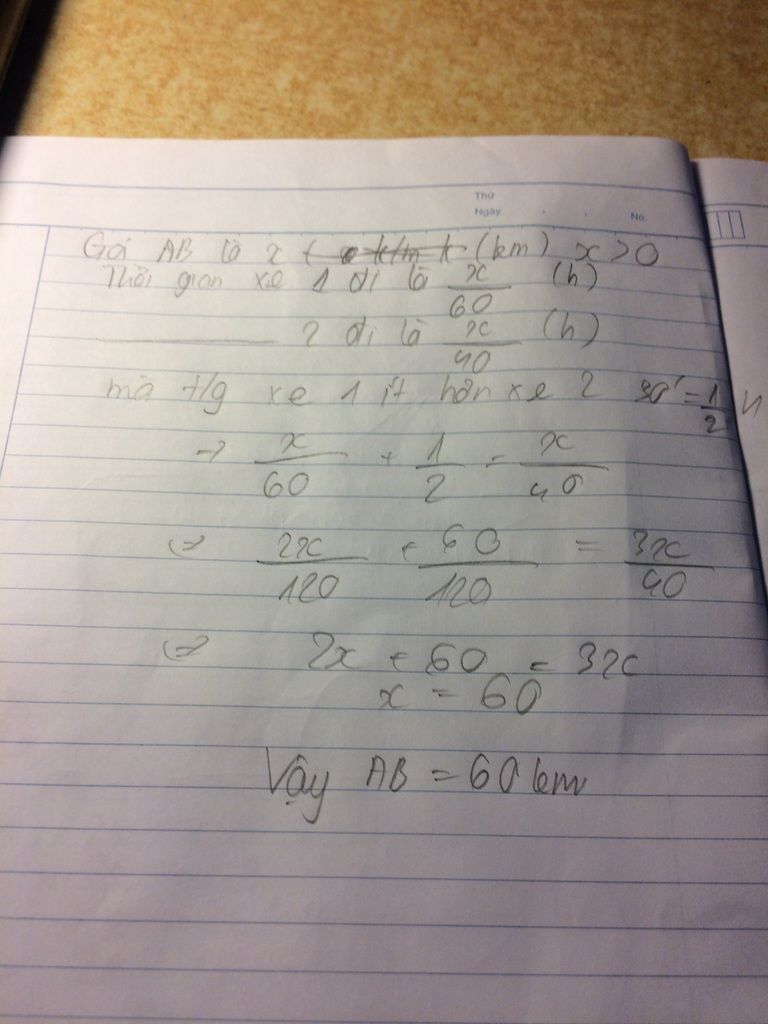 Thứ
Ngày . . No.
Gọi AB là x (km) x > 0
Thời gian xe 1 đi là x/60 (h)
________ 2 đi là x/40 (h)
mà t/g xe 1 ít hơn xe 2 30' = 1/2 h
→ x/60 + 1/2 = x/40
⇔ 2x/120 + 60/120 = 3x/40
⇔ 2x + 60 = 3x
x = 60
Vậy AB = 60 km